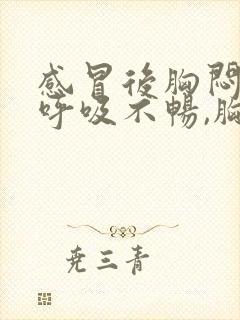 感冒後胸悶
呼吸不暢,胸
尭三青